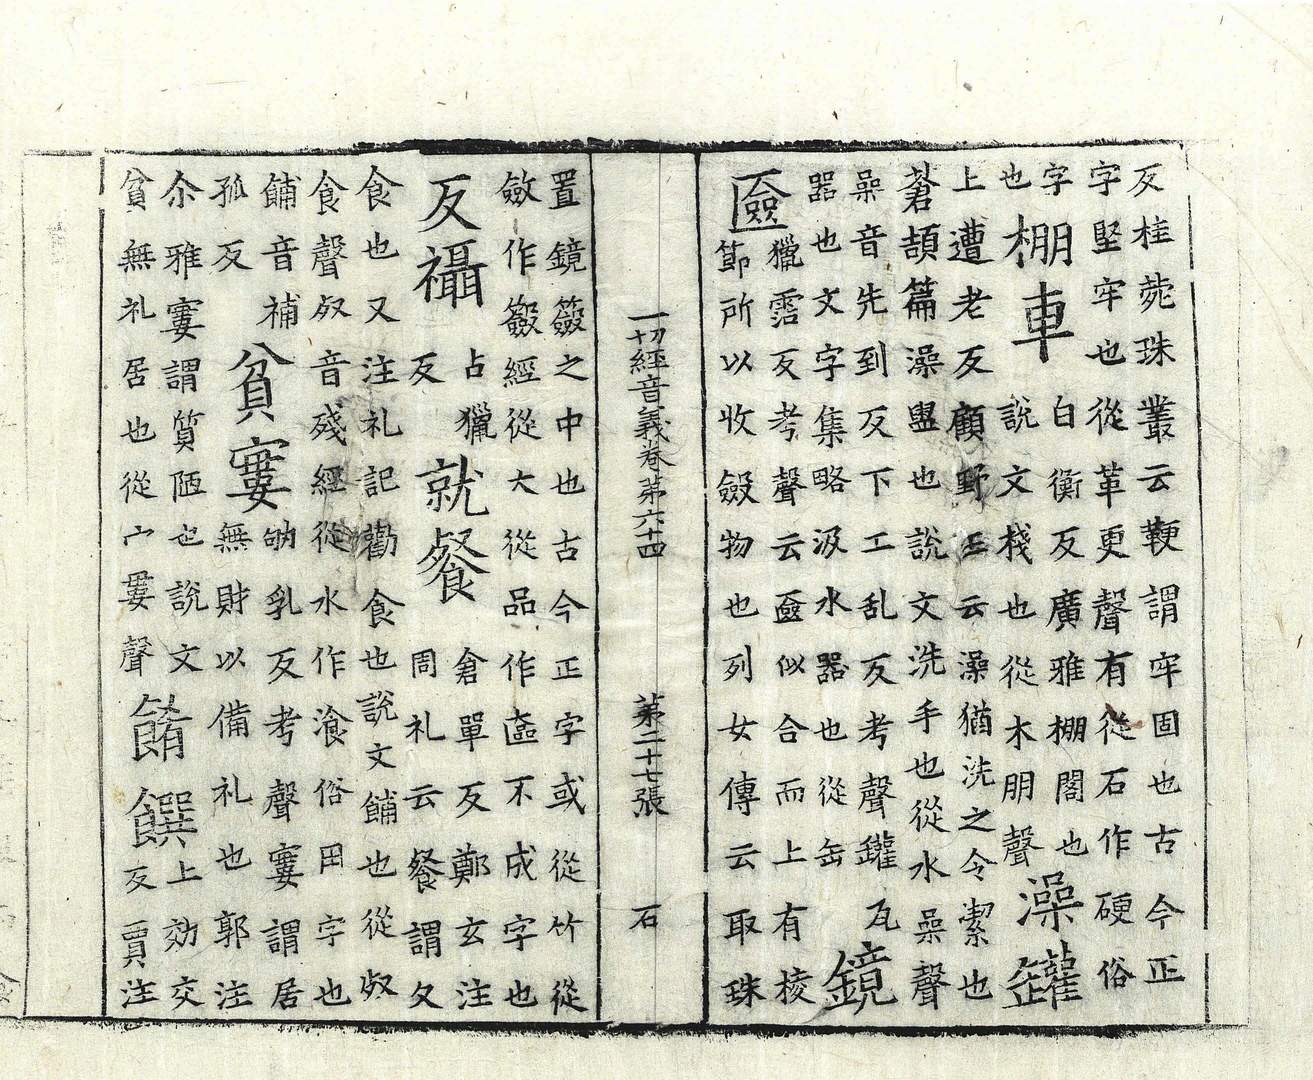 反桂菀珠叢云鞕謂牢固也古今正
字堅牢也從革更聲有從石作硬俗
字也
棚車
白衡反廣雅棚閣也
說文棧也從木朋聲
澡鑵
上遭老反顧野王云澡猶洗之令潔也
蒼頡篇澡盥也說文洗手也從水喿聲
喿音先到反下工乱反考聲鑵瓦
器也文字集略汲水器也從缶
鏡
匳
獵霑反考聲云匳似合而上有棱
節所以收斂物也列女傳云取珠
一切經音義卷第六十四
第二十七張
石
置鏡籢之中也古今正字或從竹從
斂作籢經從大從品作匲不成字也
反襵
占獵
反
就餐
倉單反鄭玄注
周礼云餐謂夕
食也又注礼記勸食也說文餔也從奴
食聲奴音殘經從水作湌俗用字也
餔音補
孤反
貧寠
劬乳反考聲寠謂居
無財以備礼也郭注
尒雅寠謂質陋也說文
貧無礼居也從宀婁聲
餚饌
上効交
反賈注